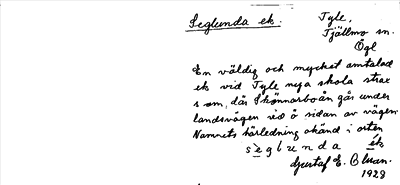 Seglunda ek.
Tyle,
Tjällmo sn.
Ögl
En väldig och mycket omtalad
ek vid Tyle nya skola strax
s om, där Skönnarboån går under
landsvägen vid ö sidan av vägen.
Namnets härledning okänd i orten
seglunda ék
Gustaf E. Bluan.
1928